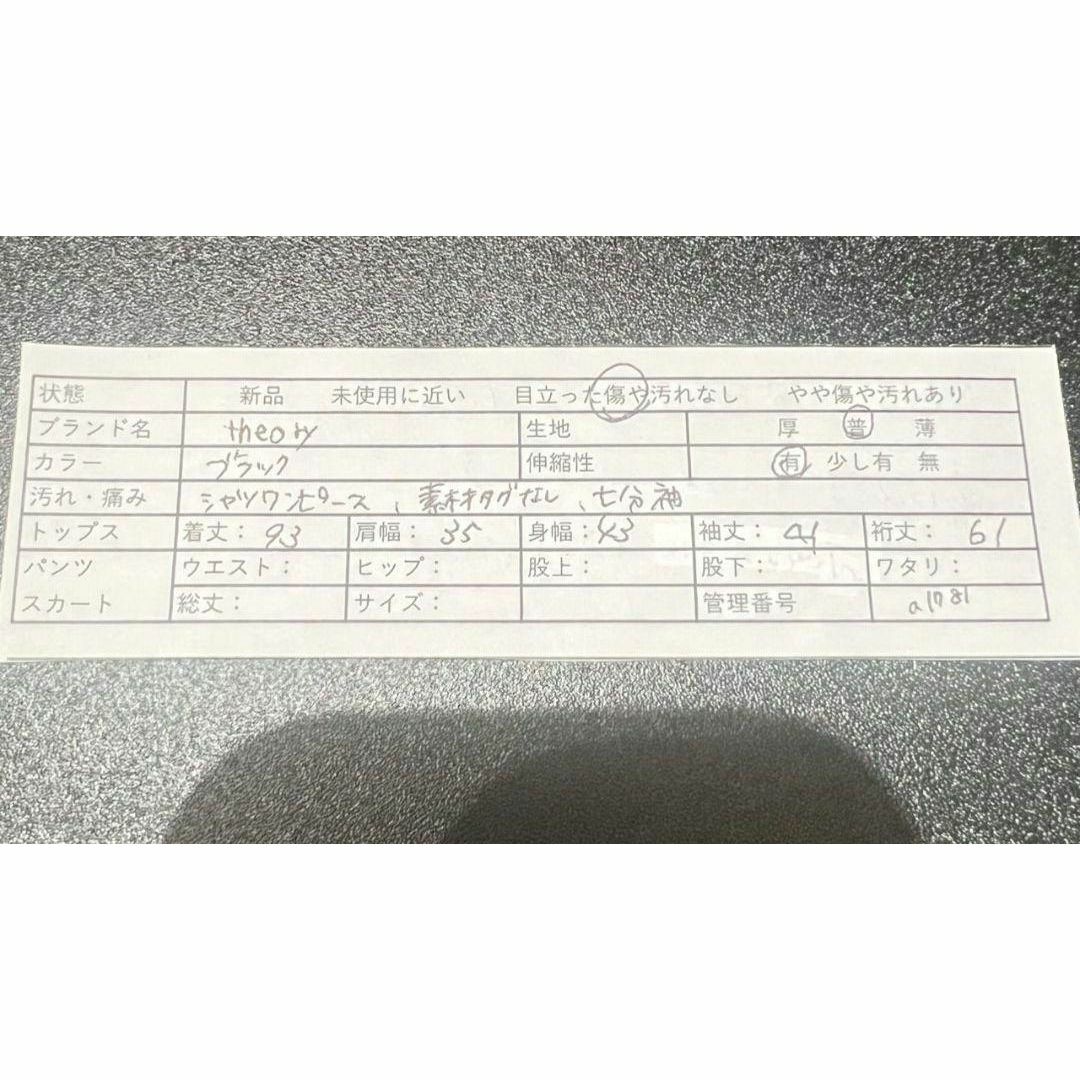 状態 新品 未使用に近い 目立った傷や汚れなし やや傷や汚れあり
ブランド名 theory 生地 厚 普 薄
カラー ブラック 伸縮性 有 少し有 無
汚れ・痛み シャツワンピース、素材タグなし、七分袖
トップス 着丈：93 肩幅：35 身幅：43 袖丈：41 裄丈：61
パンツ ウエスト： ヒップ： 股上： 股下： ワタリ：
スカート 総丈： サイズ： 管理番号 a1781